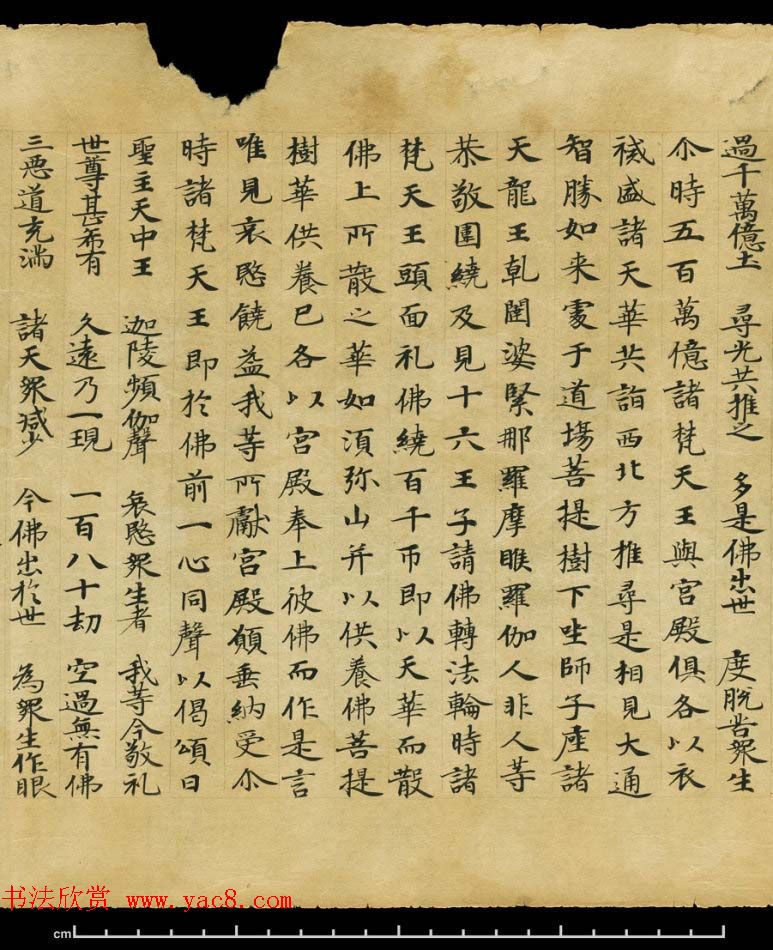 過千萬億土 尋光共推之 多是佛出世 度脫苦眾生
尒時五百萬億諸梵天王與宮殿俱各以衣
裓盛諸天華共詣西北方推尋是相見大通
智勝如来處于道場菩提樹下坐師子座諸
天龍王乹闥婆緊那羅摩睺羅伽人非人等
恭敬圍繞及見十六王子請佛轉法輪時諸
梵天王頭面礼佛繞百千帀即以天華而散
佛上所散之華如湏弥山并以供養佛菩提
樹華供養已各以宮殿奉上彼佛而作是言
唯見哀愍饒益我等所獻宮殿願垂納受尒
時諸梵天王即於佛前一心同聲以偈頌曰
聖主天中王 迦陵頻伽聲 哀愍眾生者 我等今敬礼
世尊甚希有 久遠乃一現 一百八十劫 空過無有佛
三惡道充滿 諸天眾減少 今佛出於世 為眾生作眼
书法欣赏 www.yac8.com
cm